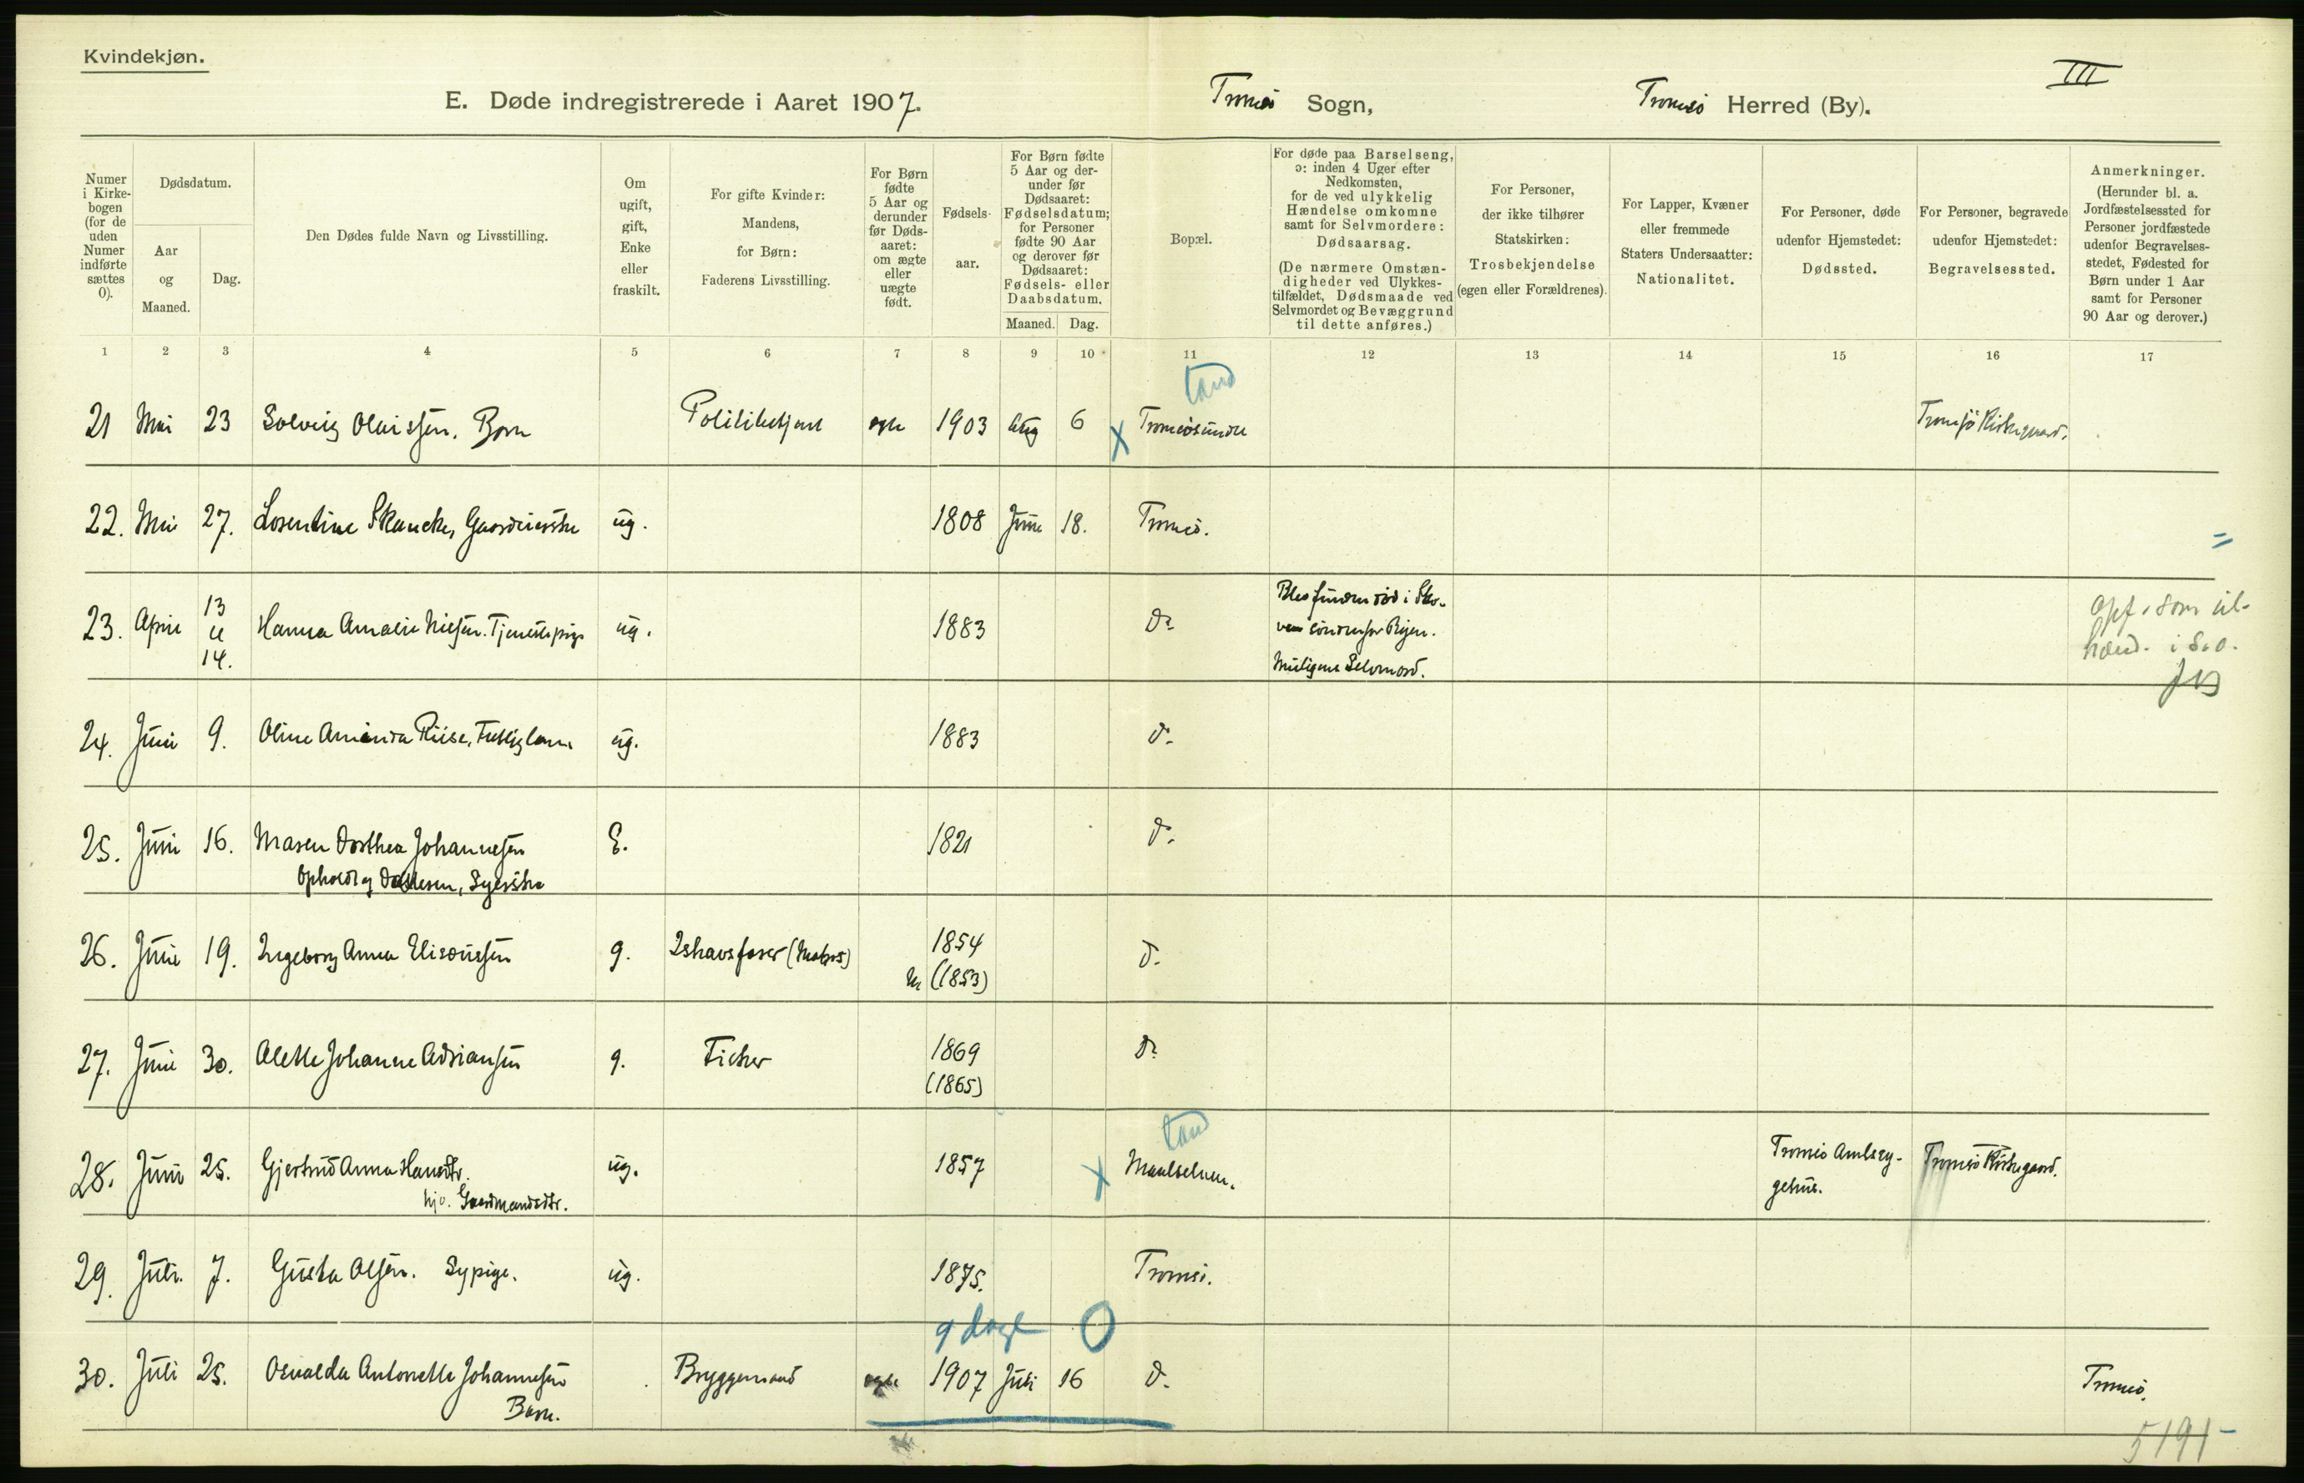 Kvindekjøn.
III
E. Døde indregistrerede i Aaret 1907. Tromsö Sogn, Tromsö Herred (By).
Numer i Kirkebogen (for de uden Numer indførte sættes 0).
Dødsdatum.
Aar og Maaned.
Dag.
Den Dødes fulde Navn og Livsstilling.
Om ugift, gift, Enke eller fraskilt.
For gifte Kvinder: Mandens, for Børn: Faderens Livsstilling.
For Børn fødte 5 Aar og derunder før Dødsaaret: om ægte eller uægte født.
Fødselsaar.
For Børn fødte 5 Aar og derunder før Dødsaaret: Fødselsdatum; for Personer fødte 90 Aar og derover før Dødsaaret: Fødsels- eller Daabsdatum.
Maaned. Dag.
Bopæl.
For døde paa Barselseng, ɔ: inden 4 Uger efter Nedkomsten, for de ved ulykkelig Hændelse omkomne samt for Selvmordere: Dødsaarsag.
(De nærmere Omstændigheder ved Ulykkestilfældet, Dødsmaade ved Selvmordet og Bevæggrund til dette anføres.)
For Personer, der ikke tilhører Statskirken: Trosbekjendelse (egen eller Forældrenes).
For Lapper, Kvæner eller fremmede Staters Undersaatter: Nationalitet.
For Personer, døde udenfor Hjemstedet: Dødssted.
For Personer, begravede udenfor Hjemstedet: Begravelsessted.
Anmerkninger.
(Herunder bl. a. Jordfæstelsessted for Personer jordfæstede udenfor Begravelsesstedet, Fødested for Børn under 1 Aar samt for Personer 90 Aar og derover.)
1 2 3 4 5 6 7 8 9 10 11 12 13 14 15 16 17
Land
21 Mai 23 Solveig Olaissen. Barn Politibetjent ægte 1903 Aug 6 X Tromsösundet Tromsö Kirkegaard.
22. Mai 27. Losentine Skancke, Gaardeierske ug. 1808 Juni 18. Tromsö.
23. April 13 14. Hanna Amalie Nielsen. Tjenestepige ug. 1883 Do Blev funden död i Skoven söndenfor Byen. Muligens Selvmord.
24. Juni 9. Oline Amanda Riise, Fattiglem ug. 1883 d.
25. Juni 16. Maren Dorthea Johannesen E. 1821 d.
26. Juni 19. Ingeborg Anna Elisæussen g. Ishavsfarer (Matros) 1854 (1853) d.
27. Juni 30. Alette Johanne Adriansen g. Fisker 1869 (1865) Do
Land
28. Juni 25. Gjertrud Anna Hansdtr. ug. 1857 X Maalselven. Tromsö Amtssygehus. Tromsö Kirkegaard.
hjv. Gaardmandsdtr.
29. Juli 7. Gusta Olsen. Sypige. ug. 1875. Tromsö.
9 dage O
30. Juli 25. Osvalda Antonette Johannesen Bryggemand ægte 1907 Juli 16 d. Tromsö.
Barn.
5191